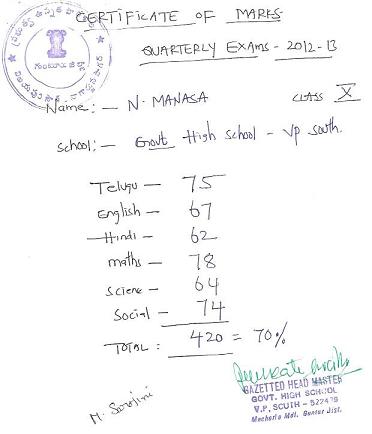 CERTIFICATE OF MARKS
QUARTERLY EXAMS - 2012-13
గుంటూరు జిల్లా
Name:- N. MANASA CLASS X
School:- Govt High School - VP South.
Telugu - 75
English - 67
Hindi - 62
maths - 78
Sciene - 64
Social - 74
TOTAL: 420 = 70%
M. Sarojini
GAZETTED HEAD MASTER
GOVT. HIGH SCHOOL
V.P. SOUTH - 522439
Macherla Mdl. Guntur Dist.